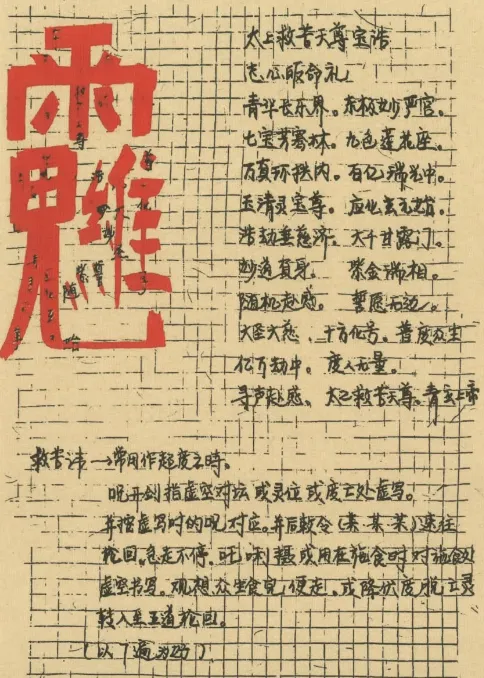 太上救苦天尊宝诰
志心皈命礼
青华长乐界。东极妙严宫。
七宝芳骞林。九色莲花座。
万真环拱内。百亿瑞光中。
玉清灵宝尊。应化玄元始。
浩劫垂慈济。大千甘露门。
妙道真身。紫金瑞相。
随机赴感。誓愿无边。
大圣大慈、十方化号。普度众生
亿万劫中。度人无量。
寻声赴感、太乙救苦天尊。青玄上帝
救苦讳→常用作超度之時。
呪开剑指虚空对坛或灵位或废亡处虚写。
并按虚写时的呪对应。并后敕令(某某某)速往
轮回。急走不停。可 摄或用在施食时对施食处
虚空书写。观想众生食完便走、或降伏度脱亡灵
转入至五道轮回。
(以7遍为巧)